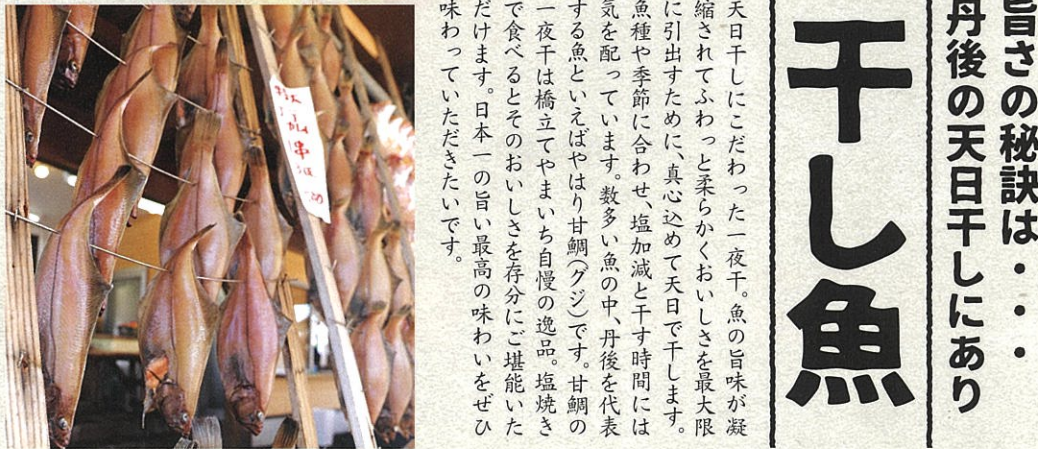 旨さの秘訣は・・・
丹後の天日干しにあり
干し魚
天日干しにこだわった一夜干。魚の旨味が凝
縮されてふわっと柔らかくおいしさを最大限
に引出すために、真心込めて天日で干します。
魚種や季節に合わせ、塩加減と干す時間には
気を配っています。数多い魚の中、丹後を代表
する魚といえばやはり甘鯛(グジ)です。甘鯛の
一夜干は橋立てやまいち自慢の逸品。塩焼き
で食べるとそのおいしさを存分にご堪能いた
だけます。日本一の旨い最高の味わいをぜひ
味わっていただきたいです。